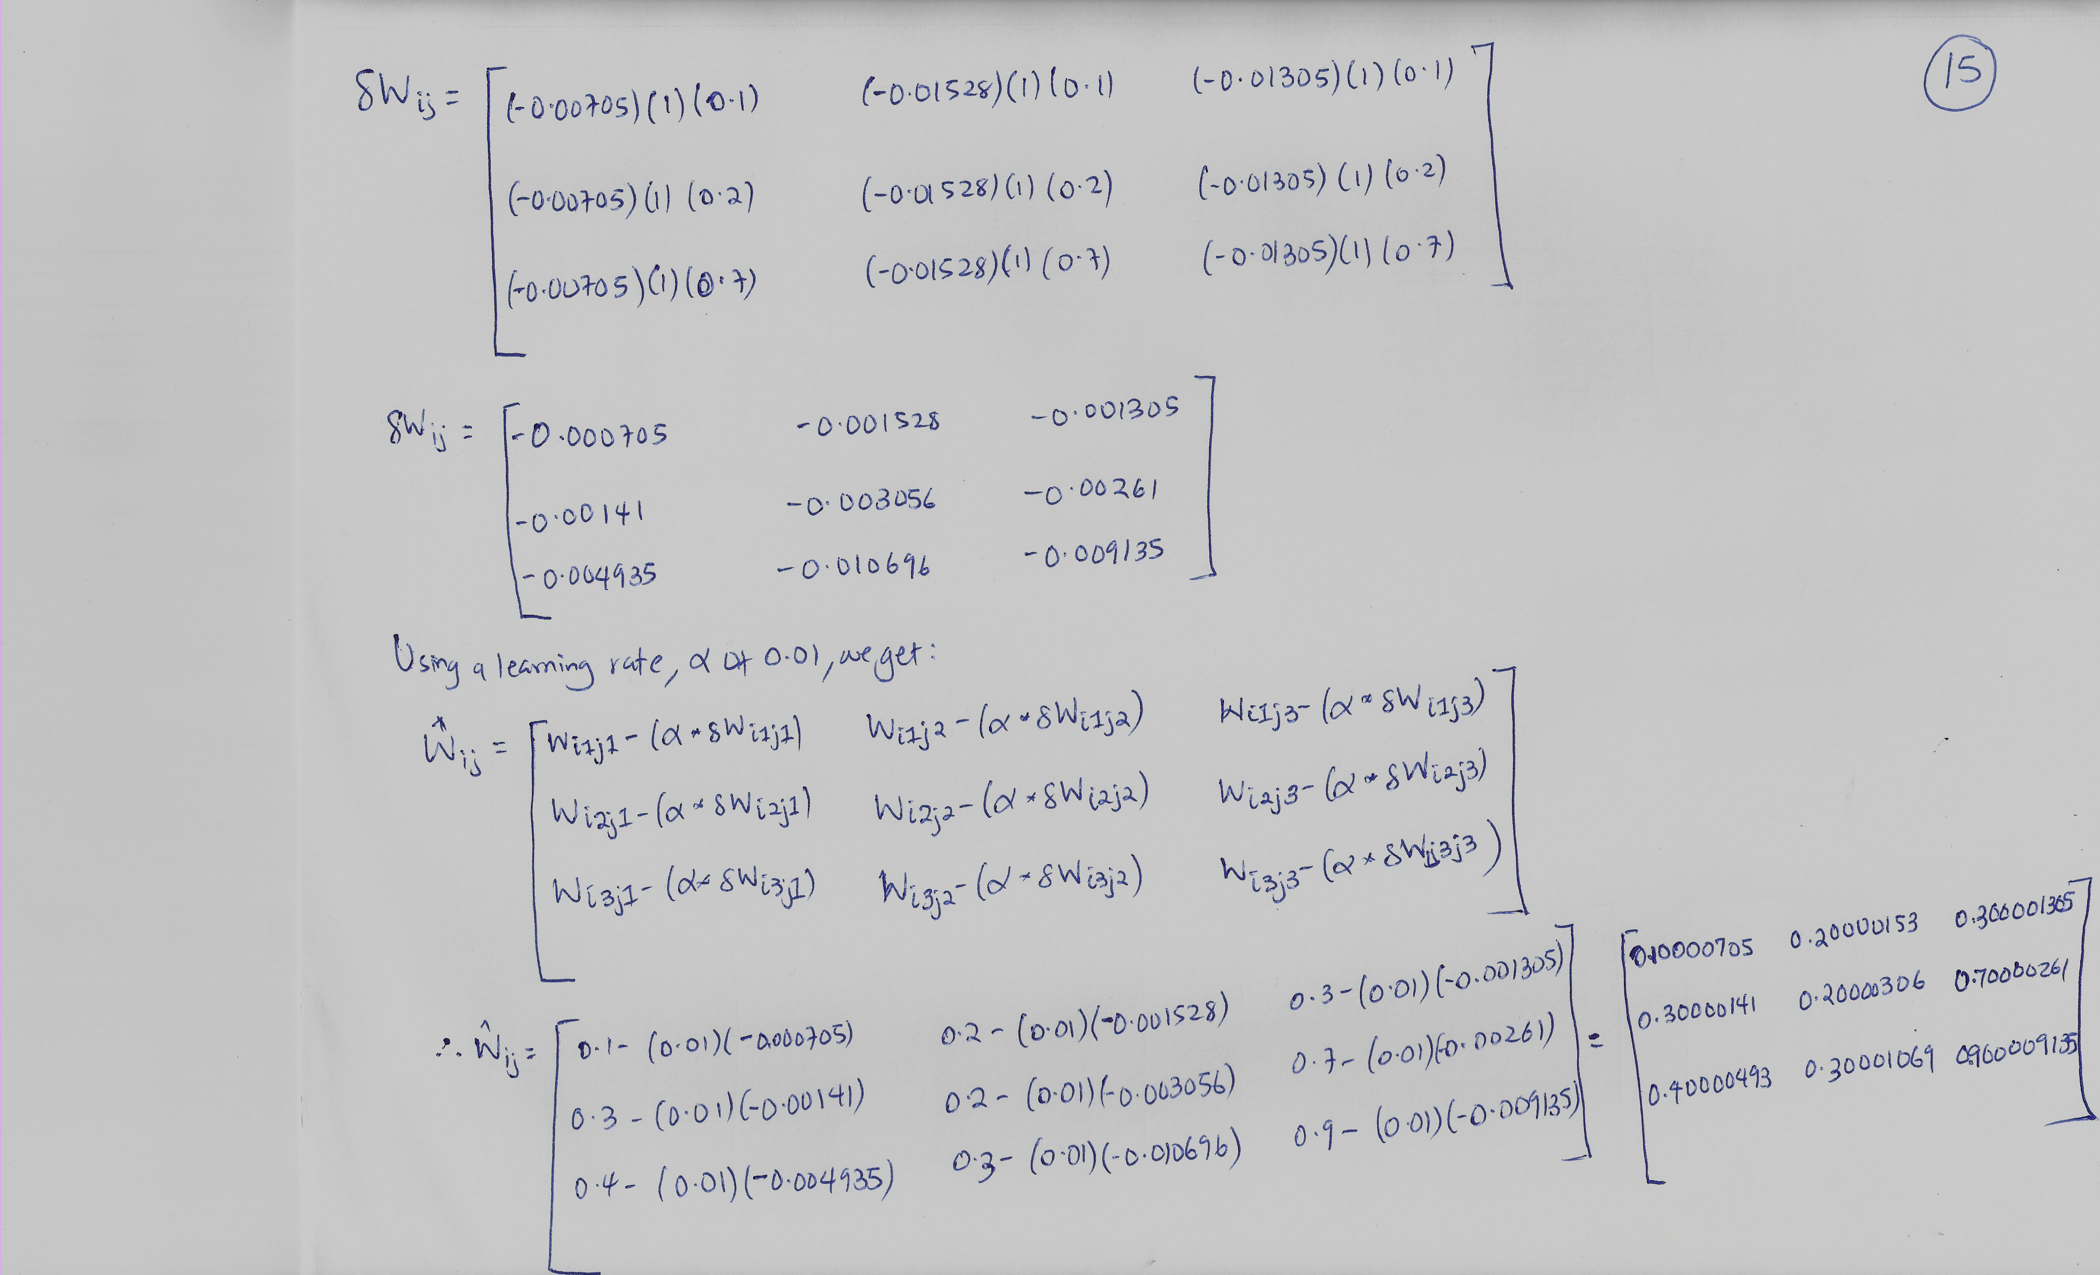 15
δWij = [ (-0.00705)(1)(0.1) (-0.01528)(1)(0.1) (-0.01305)(1)(0.1) ]
(-0.00705)(1)(0.2) (-0.01528)(1)(0.2) (-0.01305)(1)(0.2)
(-0.00705)(1)(0.7) (-0.01528)(1)(0.7) (-0.01305)(1)(0.7)
δWij = [ -0.000705 -0.001528 -0.001305 ]
-0.00141 -0.003056 -0.00261
-0.004935 -0.010696 -0.009135
Using a learning rate, α of 0.01, we get:
Ŵij = [ Wi1j1-(α*δWi1j1) Wi1j2-(α*δWi1j2) Wi1j3-(α*δWi1j3) ]
Wi2j1-(α*δWi2j1) Wi2j2-(α*δWi2j2) Wi2j3-(α*δWi2j3)
Wi3j1-(α*δWi3j1) Wi3j2-(α*δWi3j2) Wi3j3-(α*δWi3j3)
∴ Ŵij = [ 0.1-(0.01)(-0.000705) 0.2-(0.01)(-0.001528) 0.3-(0.01)(-0.001305) ] = [ 0.10000705 0.20000153 0.300001305 ]
0.3-(0.01)(-0.00141) 0.2-(0.01)(-0.003056) 0.7-(0.01)(-0.00261) 0.30000141 0.20000306 0.70000261
0.4-(0.01)(-0.004935) 0.3-(0.01)(-0.010696) 0.9-(0.01)(-0.009135) 0.40000493 0.30001069 0.900009135